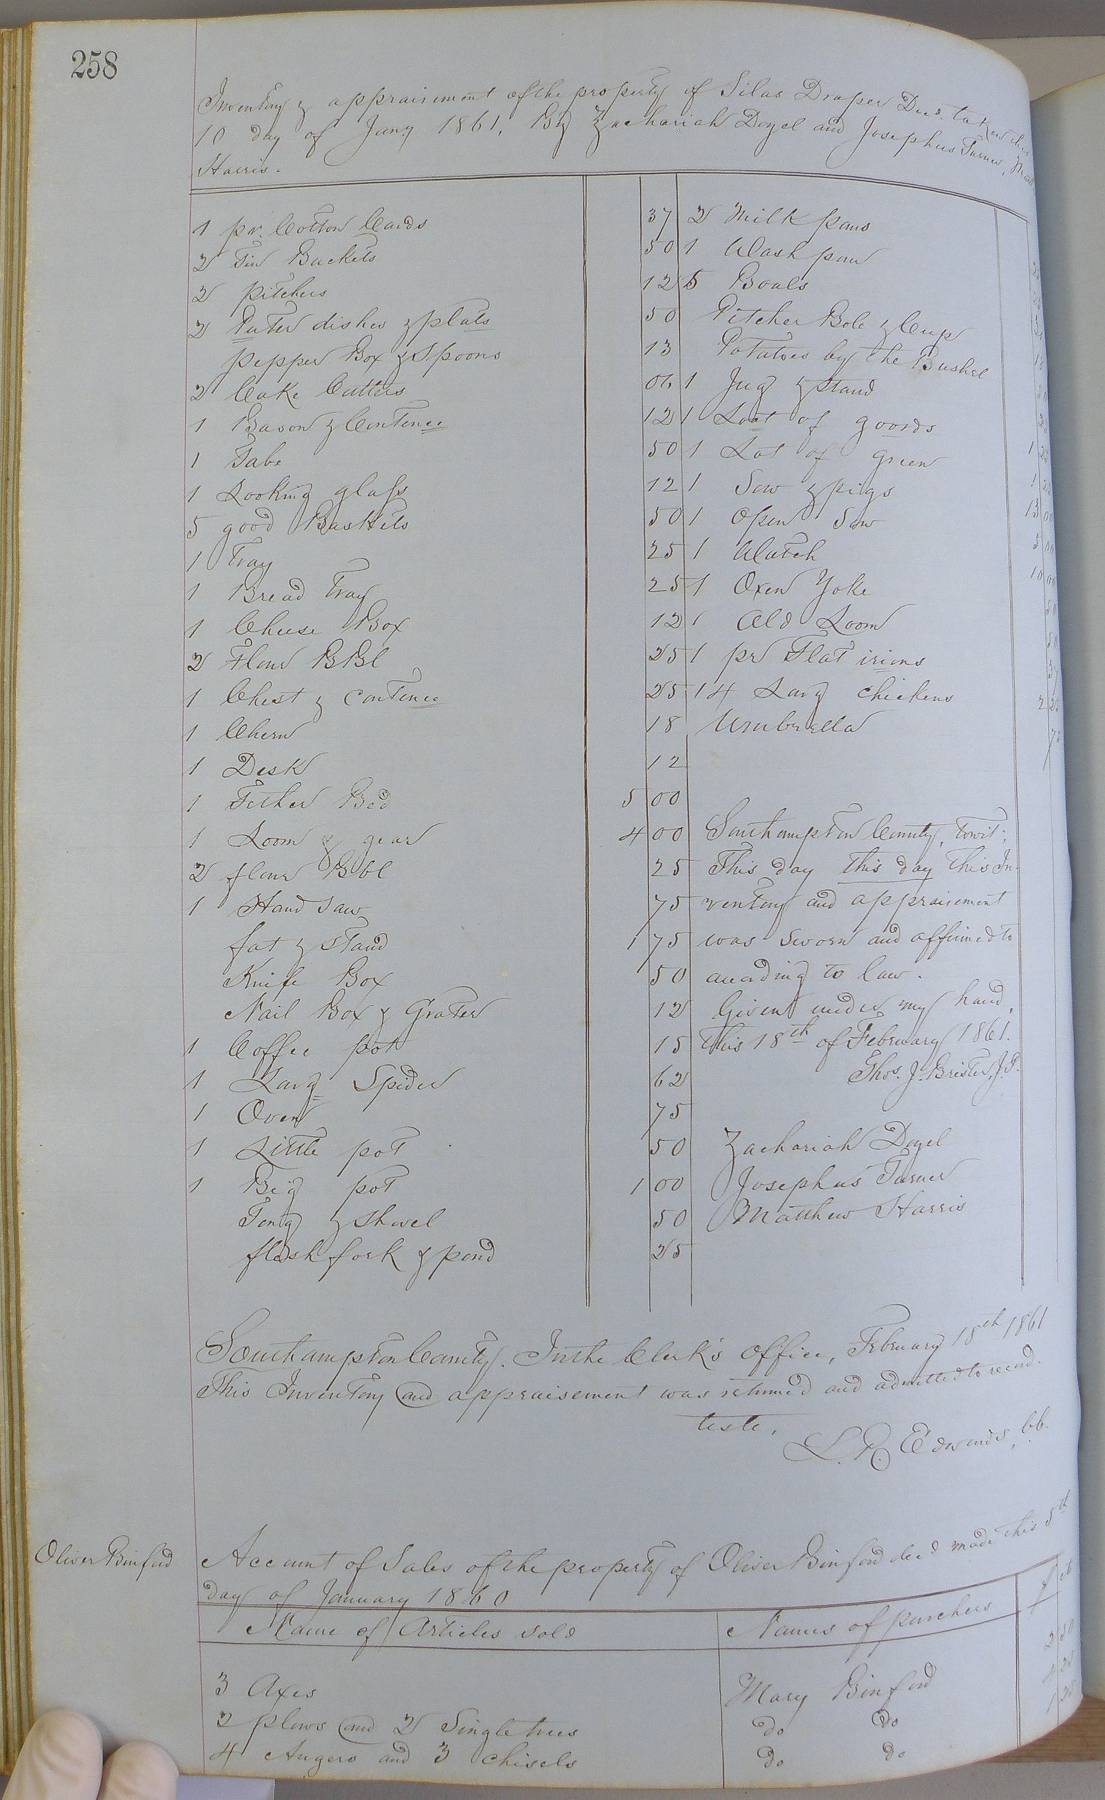 258
Inventory & appraisement of the property of Silas Draper Decd. taken this
10 day of Jany 1861, By Zachariah Doyel and Josephus Turner, Mat
Harris.
1 pr. Cotton Cards 37
2 Tin Buckets 50
2 pitchers 12
2 Puter dishes & plats 50
pepper Box & Spoons 13
2 Cake Cutters 06
1 Bason & Contence 12
1 Tabe 50
1 Looking glass 12
5 good Baskets 50
1 Tray 25
1 Bread Tray 25
1 Cheese Box 12
2 Flour BBl 25
1 Chest & contence 25
1 Chern 18
1 Desk 12
1 Fether Bed 5 00
1 Loom & gear 4 00
2 flour Bbl 25
1 Hand saw 75
fat & stand 1 75
Knife Box 50
Nail Box & Grater 12
1 Coffee pot 15
1 Larg Spider 62
1 Oven 75
1 Little pot 50
1 Big pot 1 00
Tong & shovel 50
flesh fork & pend 25
2 Milk pans
1 Wash pan
5 Boals
Pitcher Bole & Cup
Potatoes by the Bushel
1 Jug & stand
1 Loat of goods
1 Lot of green 1
1 Sow & pigs 1
1 Open Sow 13
1 Watch 5
1 Oxen Yoke 10
1 Old Loom
1 pr Flat irions
14 Larg chickens 2
Umberella
Southampton County, towit:
This day this day this In-
ventory and appraisement
was sworn and affirmed to
according to law.
Given under my hand,
this 18th of February 1861.
Thos. J. Brister, J.P.
Zachariah Doyel
Josephus Turner
Matthew Harris
Southampton County. In the Clerk's office, February 18th 1861
This Inventory and appraisement was returned and admitted to record.
teste,
L. R. Edwards, CC.
Oliver Binford
Account of Sales of the property of Oliver Binford decd made this 5th
day of January 1860
Name of Articles sold Names of purchers $ cts
3 Axes Mary Binford 2 50
2 plows and 2 Singletrees do do
4 Augers and 3 chisels do do